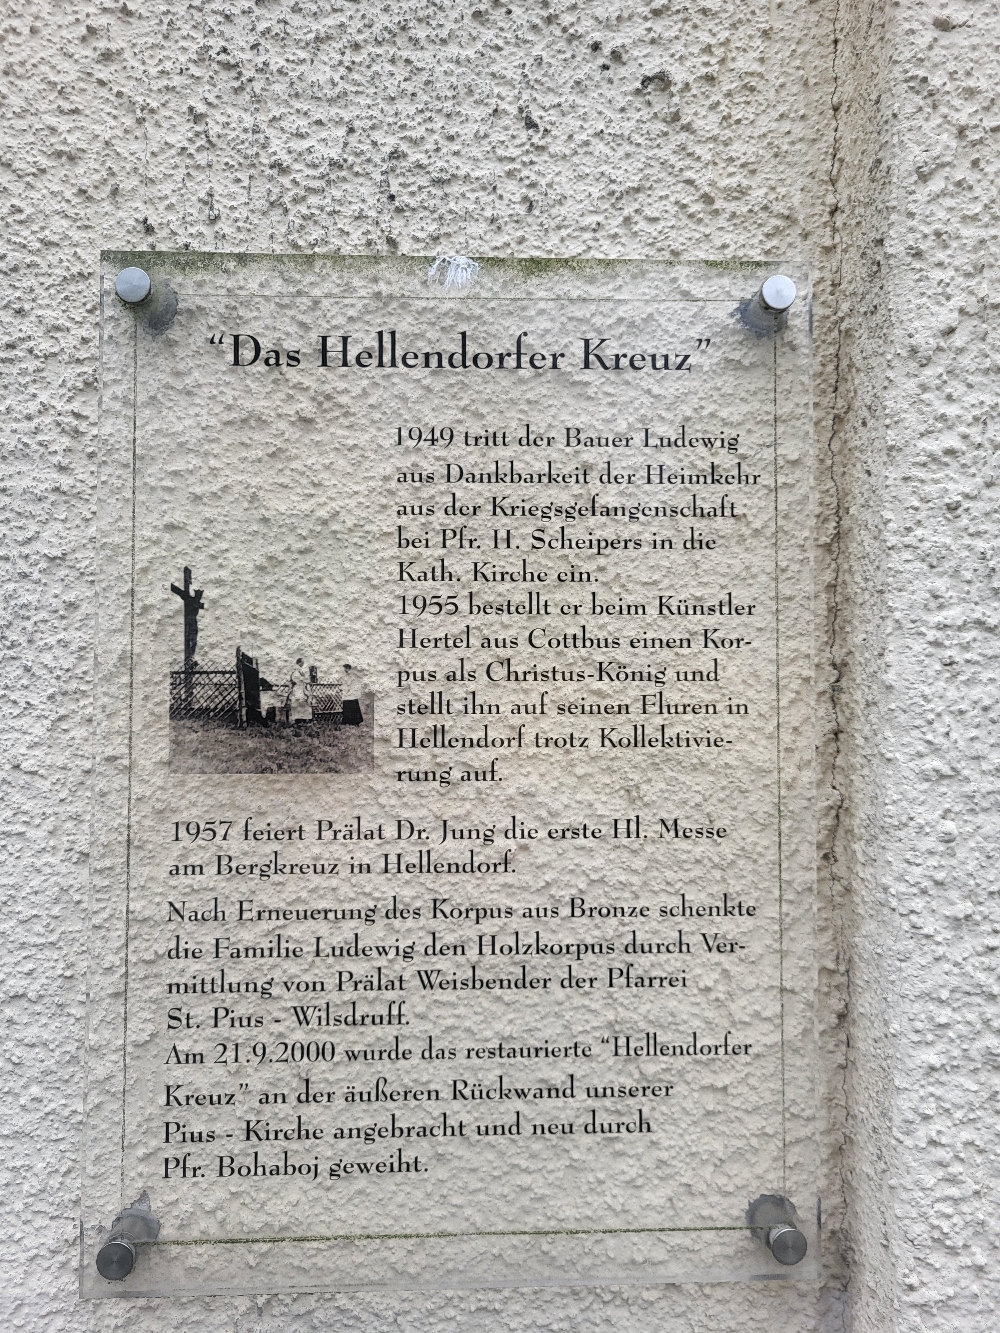 “Das Hellendorfer Kreuz”
1949 tritt der Bauer Ludewig
aus Dankbarkeit der Heimkehr
aus der Kriegsgefangenschaft
bei Pfr. H. Scheipers in die
Kath. Kirche ein.
1955 bestellt er beim Künstler
Hertel aus Cottbus einen Kor-
pus als Christus-König und
stellt ihn auf seinen Fluren in
Hellendorf trotz Kollektivie-
rung auf.
1957 feiert Prälat Dr. Jung die erste Hl. Messe
am Bergkreuz in Hellendorf.
Nach Erneuerung des Korpus aus Bronze schenkte
die Familie Ludewig den Holzkorpus durch Ver-
mittlung von Prälat Weisbender der Pfarrei
St. Pius - Wilsdruff.
Am 21.9.2000 wurde das restaurierte “Hellendorfer
Kreuz” an der äußeren Rückwand unserer
Pius - Kirche angebracht und neu durch
Pfr. Bohaboj geweiht.